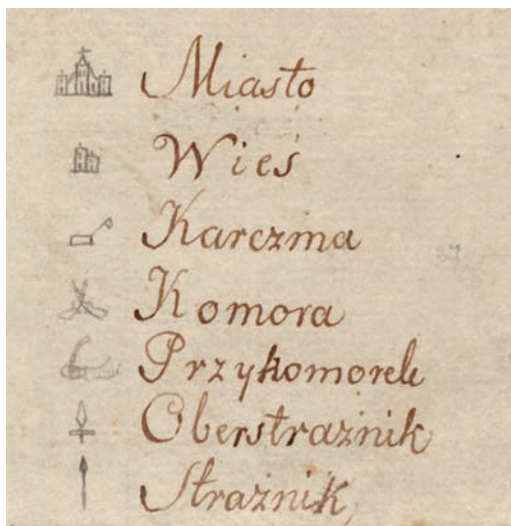 Miasto
Wieś
Karczma
Komora
Przykomorek
Oberstraznik
Straznik